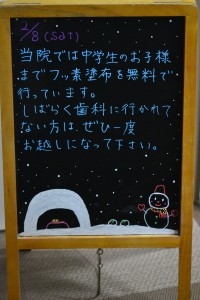 2/8(sat)
当院では中学生のお子様
までフッ素塗布を無料で
行っています。
しばらく歯科に行かれて
ない方は、ぜひ一度
お越しになって下さい。